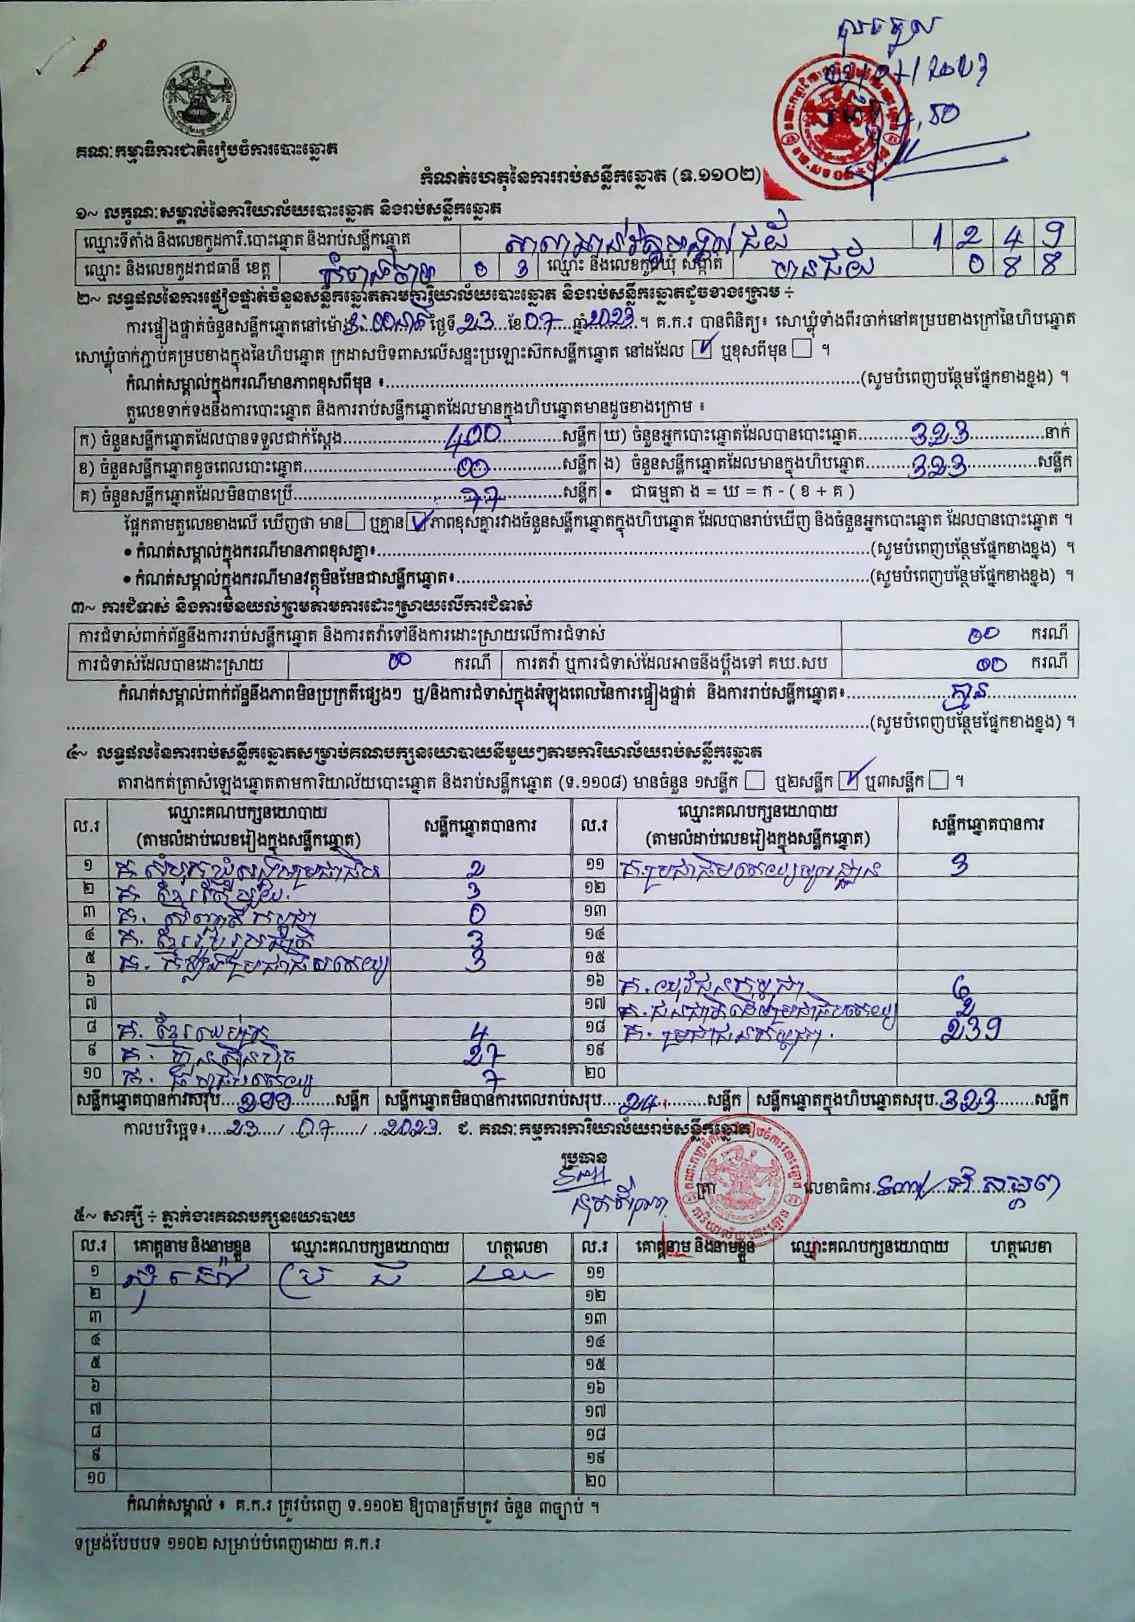 គណៈកម្មាធិការជាតិរៀបចំការបោះឆ្នោត
កំណត់ហេតុនៃការរាប់សន្លឹកឆ្នោត (ទ.១១០២)
១~ លក្ខណៈសម្គាល់នៃការិយាល័យបោះឆ្នោត និងរាប់សន្លឹកឆ្នោត
ឈ្មោះទីតាំង និងលេខកូដការិ.បោះឆ្នោត និងរាប់សន្លឹកឆ្នោត 1 2 4 9
ឈ្មោះ និងលេខកូដរាជធានី ខេត្ត កំពង់ចាម 0 3 ឈ្មោះ និងលេខកូដឃុំ សង្កាត់ មានជ័យ 0 8 8
២~ លទ្ធផលនៃការផ្ទៀងផ្ទាត់ចំនួនសន្លឹកឆ្នោតតាមការិយាល័យបោះឆ្នោត និងរាប់សន្លឹកឆ្នោតដូចខាងក្រោម ÷
ការផ្ទៀងផ្ទាត់ចំនួនសន្លឹកឆ្នោតនៅម៉ោង 3:00 ថ្ងៃទី 23 ខែ 07 ឆ្នាំ 2023 ។ គ.ក.រ បានពិនិត្យ៖ សោឃ្លុំទាំងពីរចាក់នៅគម្របខាងក្រៅនៃហិបឆ្នោត
សោឃ្លុំចាក់ភ្ជាប់គម្របខាងក្នុងនៃហិបឆ្នោត ក្រដាសបិទពាសលើសន្ទះប្រឡោះស៊កសន្លឹកឆ្នោត នៅដដែល ☑ ឬខុសពីមុន ☐ ។
កំណត់សម្គាល់ក្នុងករណីមានភាពខុសពីមុន ៖ (សូមបំពេញបន្ថែមផ្នែកខាងខ្នង) ។
តួលេខទាក់ទងនឹងការបោះឆ្នោត និងការរាប់សន្លឹកឆ្នោតដែលមានក្នុងហិបឆ្នោតមានដូចខាងក្រោម ៖
ក) ចំនួនសន្លឹកឆ្នោតដែលបានទទួលជាក់ស្តែង 400 សន្លឹក ឃ) ចំនួនអ្នកបោះឆ្នោតដែលបានបោះឆ្នោត 323 នាក់
ខ) ចំនួនសន្លឹកឆ្នោតខូចពេលបោះឆ្នោត 00 សន្លឹក ង) ចំនួនសន្លឹកឆ្នោតដែលមានក្នុងហិបឆ្នោត 323 សន្លឹក
គ) ចំនួនសន្លឹកឆ្នោតដែលមិនបានប្រើ 77 សន្លឹក • ជាធម្មតា ង = ឃ = ក - ( ខ + គ )
ផ្អែកតាមតួលេខខាងលើ ឃើញថា មាន ☐ ឬគ្មាន ☑ ភាពខុសគ្នារវាងចំនួនសន្លឹកឆ្នោតក្នុងហិបឆ្នោត ដែលបានរាប់ឃើញ និងចំនួនអ្នកបោះឆ្នោត ដែលបានបោះឆ្នោត ។
• កំណត់សម្គាល់ក្នុងករណីមានភាពខុសគ្នា៖ (សូមបំពេញបន្ថែមផ្នែកខាងខ្នង) ។
• កំណត់សម្គាល់ក្នុងករណីមានវត្ថុមិនមែនជាសន្លឹកឆ្នោត៖ (សូមបំពេញបន្ថែមផ្នែកខាងខ្នង) ។
៣~ ការជំទាស់ និងការមិនយល់ព្រមតាមការដោះស្រាយលើការជំទាស់
ការជំទាស់ពាក់ព័ន្ធនឹងការរាប់សន្លឹកឆ្នោត និងការតវ៉ាទៅនឹងការដោះស្រាយលើការជំទាស់ 00 ករណី
ការជំទាស់ដែលបានដោះស្រាយ 00 ករណី ការតវ៉ា ឬការជំទាស់ដែលអាចនឹងប្តឹងទៅ គឃ.សប 00 ករណី
កំណត់សម្គាល់ពាក់ព័ន្ធនឹងភាពមិនប្រក្រតីផ្សេងៗ ឬ/និងការជំទាស់ក្នុងអំឡុងពេលនៃការផ្ទៀងផ្ទាត់ និងការរាប់សន្លឹកឆ្នោត៖ គ្មាន
(សូមបំពេញបន្ថែមផ្នែកខាងខ្នង) ។
៤~ លទ្ធផលនៃការរាប់សន្លឹកឆ្នោតសម្រាប់គណបក្សនយោបាយនីមួយៗតាមការិយាល័យរាប់សន្លឹកឆ្នោត
តារាងកត់ត្រាសំឡេងឆ្នោតតាមការិយាល័យបោះឆ្នោត និងរាប់សន្លឹកឆ្នោត (ទ.១១០៨) មានចំនួន ១សន្លឹក ☐ ឬ២សន្លឹក ☑ ឬ៣សន្លឹក ☐ ។
ល.រ ឈ្មោះគណបក្សនយោបាយ (តាមលំដាប់លេខរៀងក្នុងសន្លឹកឆ្នោត) សន្លឹកឆ្នោតបានការ ល.រ ឈ្មោះគណបក្សនយោបាយ (តាមលំដាប់លេខរៀងក្នុងសន្លឹកឆ្នោត) សន្លឹកឆ្នោតបានការ
១ គ. សំបុកឃ្មុំសង្គមប្រជាធិបតេយ្យ 2 ១១ 3
២ 3 ១២
៣ 0 ១៣
៤ គ. ខ្មែររួបរួមជាតិ 3 ១៤
៥ 3 ១៥
៦ ១៦ គ. យុវជនកម្ពុជា 6
៧ ១៧ គ. ជនជាតិដើមប្រជាធិបតេយ្យ 2
៨ 4 ១៨ គ. ប្រជាជនកម្ពុជា 239
៩ គ. ហ្វ៊ុនស៊ិនប៉ិច 27 ១៩
១០ 7 ២០
សន្លឹកឆ្នោតបានការសរុប 299 សន្លឹក សន្លឹកឆ្នោតមិនបានការពេលរាប់សរុប 24 សន្លឹក សន្លឹកឆ្នោតក្នុងហិបឆ្នោតសរុប 323 សន្លឹក
កាលបរិច្ឆេទ៖ 23 / 07 / 2023 ជ. គណៈកម្មការការិយាល័យរាប់សន្លឹកឆ្នោត
ប្រធាន
ត្រា លេខាធិការ
៥~ សាក្សី ÷ ភ្នាក់ងារគណបក្សនយោបាយ
ល.រ គោត្តនាម និងនាមខ្លួន ឈ្មោះគណបក្សនយោបាយ ហត្ថលេខា ល.រ គោត្តនាម និងនាមខ្លួន ឈ្មោះគណបក្សនយោបាយ ហត្ថលេខា
១ ១១
២ ១២
៣ ១៣
៤ ១៤
៥ ១៥
៦ ១៦
៧ ១៧
៨ ១៨
៩ ១៩
១០ ២០
កំណត់សម្គាល់ ៖ គ.ក.រ ត្រូវបំពេញ ទ.១១០២ ឱ្យបានត្រឹមត្រូវ ចំនួន ៣ច្បាប់ ។
ទម្រង់បែបបទ ១១០២ សម្រាប់បំពេញដោយ គ.ក.រ